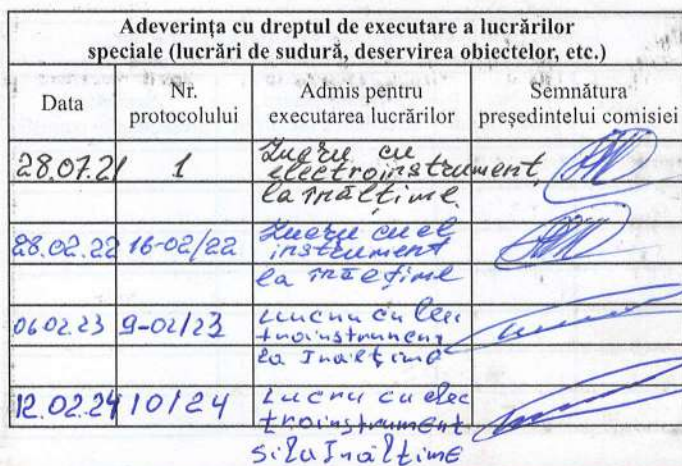 Adeverința cu dreptul de executare a lucrărilor
speciale (lucrări de sudură, deservirea obiectelor, etc.)
Data
Nr. protocolului
Admis pentru executarea lucrărilor
Semnătura președintelui comisiei
28.07.21 1 Lucru cu
electroinstrument,
la înălțime
28.02.22 16-02/22 Lucru cu el
instrument
la înălțime
06.02.23 9-02/23 Lucru cu lec
troinstrument
la Inălțime
12.02.24 10/24 Lucru cu elec
troinstrument
si la Inălțime